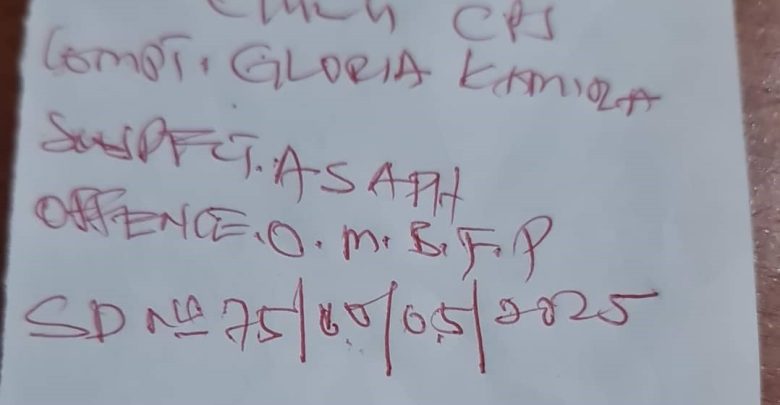 CPS
COMPT. GLORIA KAMIRA
SUSPECT. ASAPH
OFFENCE. O. M. B. F. P
SD № 75/ /05/2025